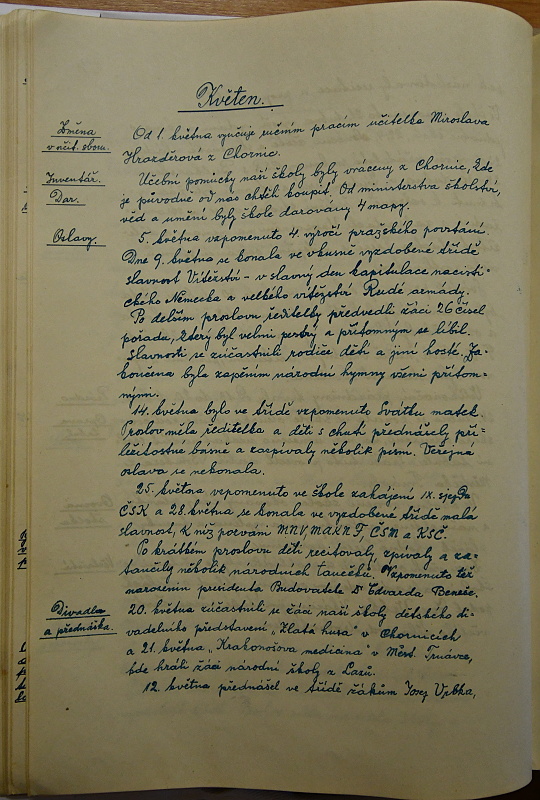 Květen.
Změna
v učit. sboru.
Od 1. května vyučuje ručním pracím učitelka Miroslava
Hrazděrová z Chornic.
Inventář.
Dar.
Učební pomůcky naší školy byly vráceny z Chornic, kde
je původně od nás chtěli koupit. Od ministerstva školství,
věd a umění byly škole darovány 4 mapy.
Oslavy.
5. května vzpomenuto 4. výročí pražského povstání.
Dne 9. května se konala ve vkusně vyzdobené třídě
slavnost Vítězství - v slavný den kapitulace nacisti-
ckého Německa a velkého vítězství Rudé armády.
Po delším proslovu ředitelky předvedli žáci 26 čísel
pořadu, který byl velmi pestrý a přítomným se líbil.
Slavnosti se zúčastnili rodiče dětí a jiní hosté. Za-
končena byla zapěním národní hymny všemi přítom-
nými.
14. května bylo ve třídě vzpomenuto Svátku matek.
Proslov měla ředitelka a děti s chutí přednášely pří-
ležitostné básně a zazpívaly několik písní. Veřejná
oslava se nekonala.
25. května vzpomenuto ve škole zahájení IX. sjezdu
ČSK a 28. května se konala ve vyzdobené třídě malá
slavnost, k níž pozváni MNV, MAKNF, ČSM a KSČ.
Po krátkém proslovu děti recitovaly, zpívaly a za-
tančily několik národních tanečků. Vzpomenuto též
narozenin presidenta Budovatele Dr Edvarda Beneše.
Divadla
a přednáška.
20. května zúčastnili se žáci naší školy dětského di-
vadelního představení „Zlatá husa" v Chornicích
a 21. května „Krakonošova medicina" v Měst. Trnávce,
kde hráli žáci národní školy z Lazů.
12. května přednášel ve třídě žákům Josef Vrbka,